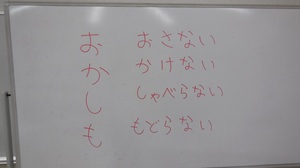 お おさない
か かけない
し しゃべらない
も もどらない